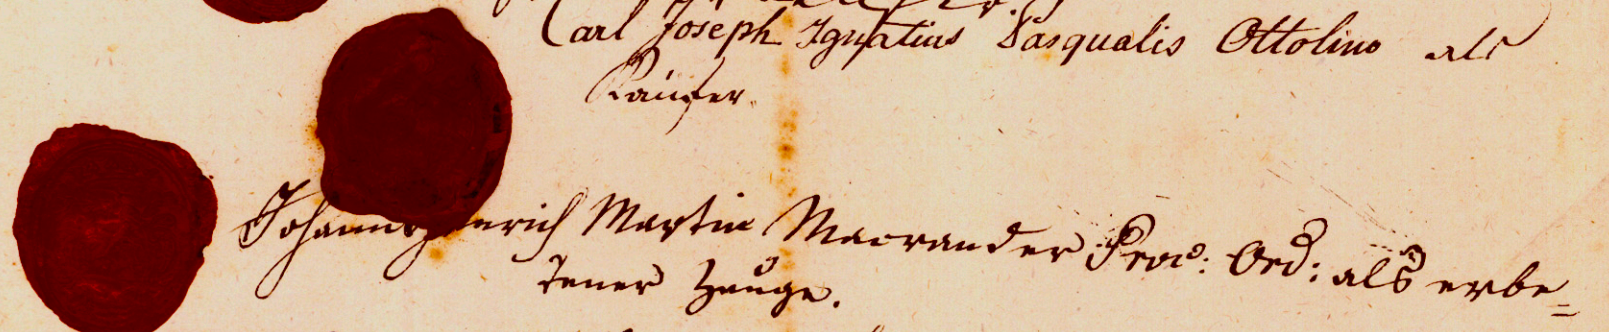 Carl Joseph Ignatius Pasqualis Ottolino als
Käufer.
Johann Henrich Martin Macrander Proc: Ord: als erbe=
tener Zeuge.